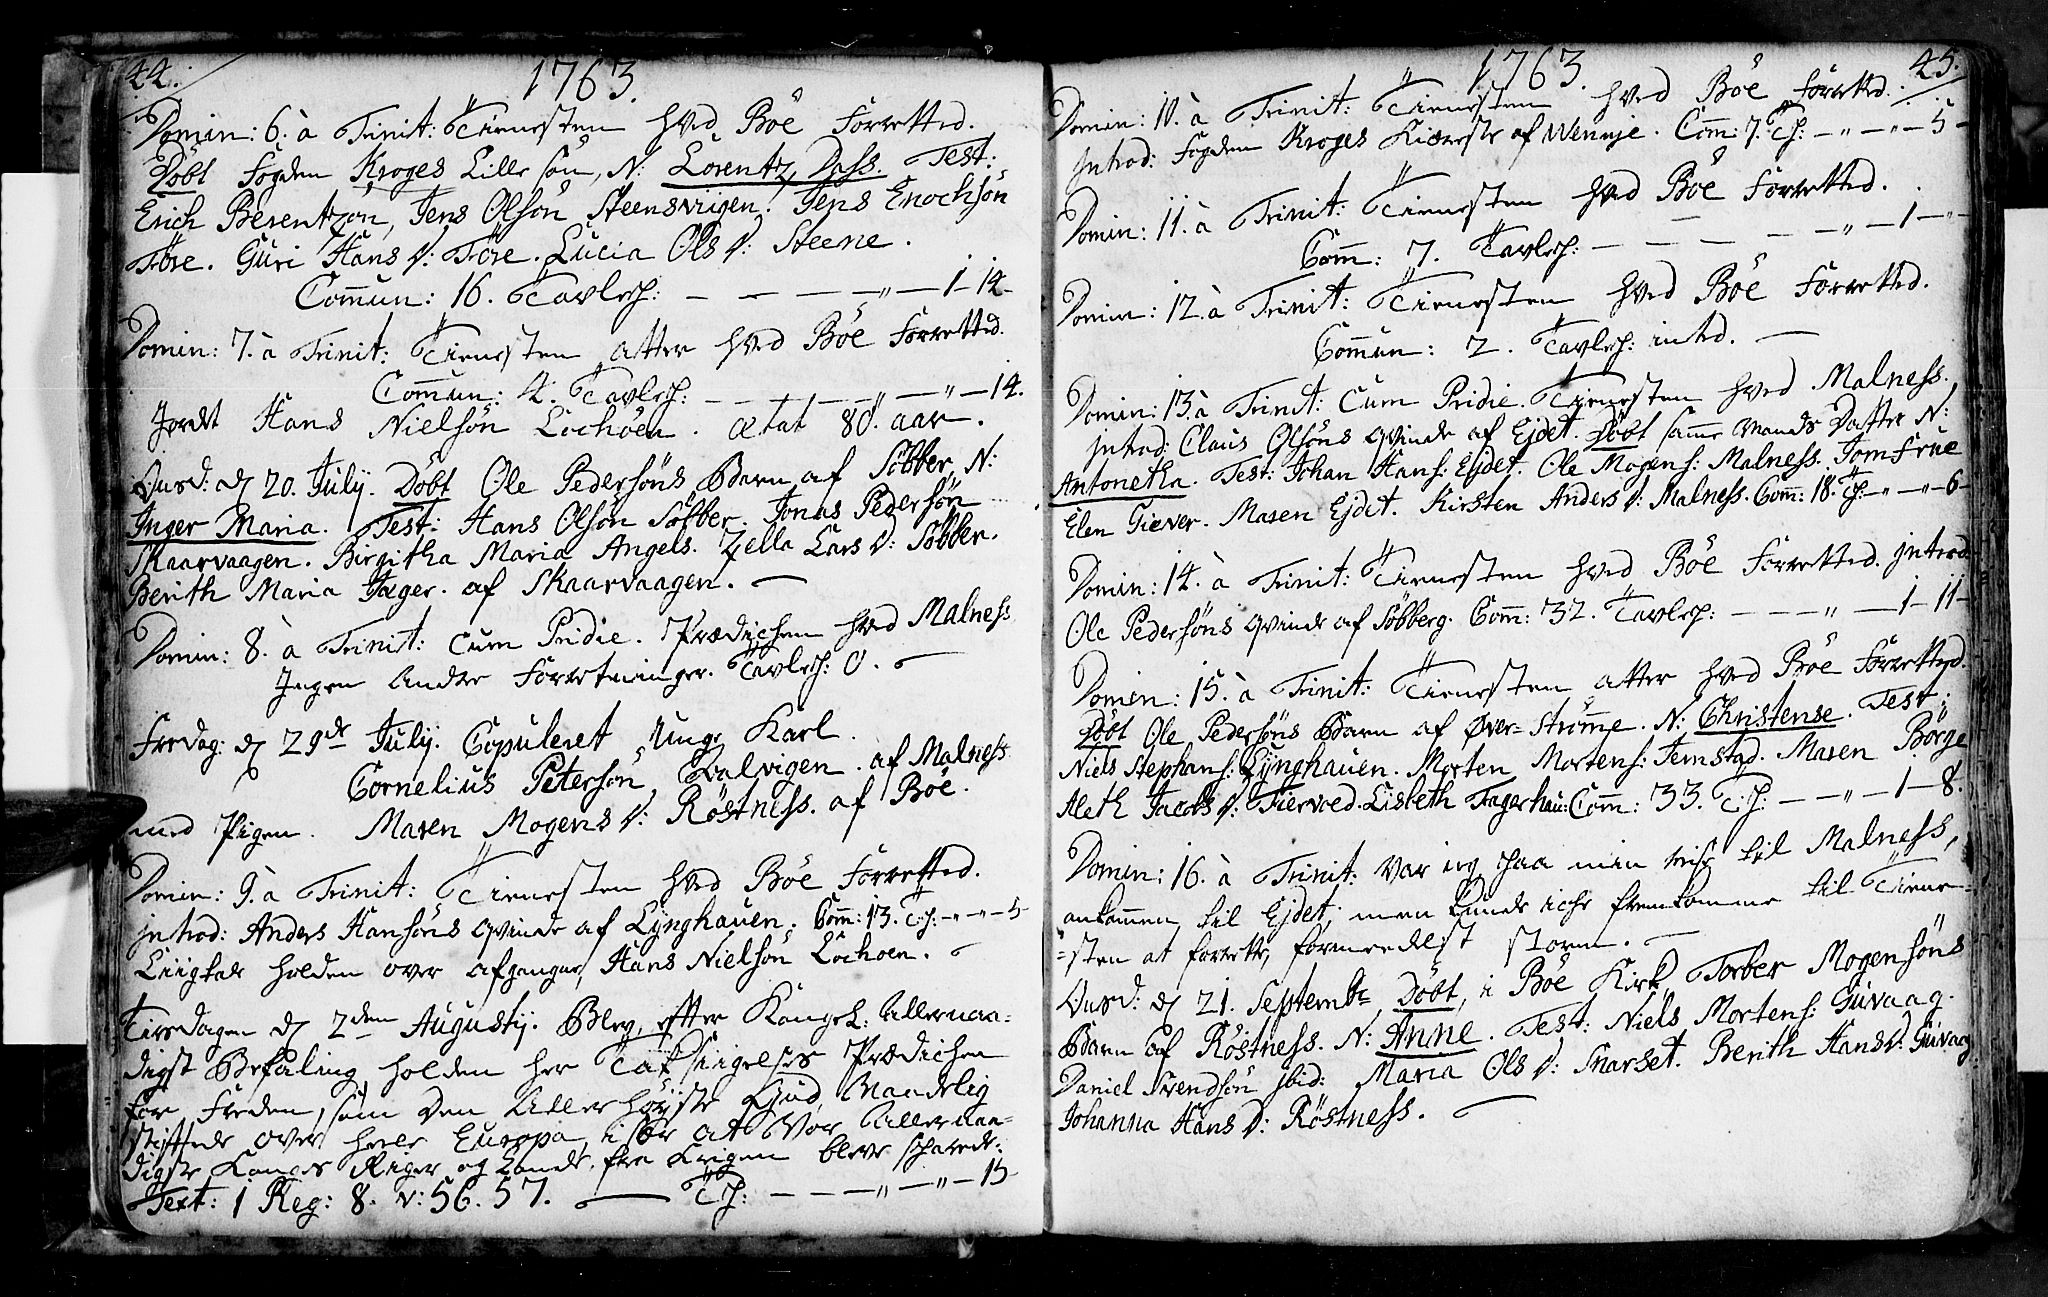 44.
1763.
Domin: 6. à Trinit: Tienesten hved Böe Forretted.
Döbt Fogden Kroges Lille sön, N: Lorentz Dass. Test:
Erich Berentzön, Jens Olsön Steensviigen. Jens Enochsön
Töre. Guri Hans D: Töre. Lucia Ols D: Steene.
Com̄un: 16. Tavlep: — — — „ — 1 - 14 -
Domin: 7. à Trinit: Tienesten atter hved Böe Forretted.
Com̄un: 4. Tavlep: — — — — „ — „ — 14.
Jordet Hans Nielsön Lochöen. ætat 80. aar.
Onsd: d 20. July. Döbt Ole Pedersöns Barn af Söbber, N:
Inger Maria. Test: Hans Olsön Söbber. Jonas Pedersön
Skaarvaagen. Birgitha Maria Angels. Zella Lars D: Söbber.
Berith Maria Jæger. af Skaarvaagen. —
Domin: 8. à Trinit: cum Pridie. Prædichen hved Malness
Ingen Andre Forretninger. Tavlep: 0. —
Fredag: d 29de July. Copuleret Unge Karl
Cornelius Petersön Qvalvigen. af Malness
med Pigen. Maren Mogens D: Röstness. af Böe.
Domin: 9. à Trinit: Tienesten hved Böe Forretted.
introd: Anders Hansöns qvinde af Lynghauen. Com̄: 13. Tp: - „ - „ - 5
Liigtale holden over afgangne Hans Nielsön Lochoen.
Tirsdagen d 2den Augustij. Blev, efter Kongel: Allernaa=
digst Befaling holden her Taksigelses Prædichen
for Freden, som Den Allerhöyste Gud Naadelig
stiftede over heele Europa, i sær at Vor Allernaa=
digste Konges Riger og Lande fra Krigen bleve sparede:
Text: 1 Reg: 8. v: 56. 57. — Tp: — — — „ — „ — 15
45.
1763.
Domin: 10. à Trinit: Tienesten hved Böe Forretted.
Introd: Fogden Kroges Kiæreste af Wennje. Com̄: 7. Tp: — „ — „ — 5 -
Domin: 11. à Trinit: Tienesten hved Böe Forretted.
Com̄: 7. Tavlep: — — — — — „ — 1 - „ -
Domin: 12. à Trinit: Tienesten hved Böe Forretted.
Com̄un: 2. Tavlep: inted. —
Domin: 13. à Trinit: Cum Pridie. Tienesten hved Malness.
introd: Claus Olsöns qvinde af Ejdet. Döbt samme Mands Datter N:
Antonetha. Test: Johan Hans: Ejdet. Ole Mogens: Malness. Jomfrue
Elen Giever. Maren Ejdet. Kirsten Anders D: Malness. Com̄: 18. Tp: - „ - „ - 6 -
Domin: 14. à Trinit: Tienesten hved Böe Forretted. introd:
Ole Pedersöns qvinde af Söbberg. Com̄: 32. Tavlep: — — — „ — 1 - 11 -
Domin: 15. à Trinit: Tienesten atter hved Böe Forretted.
Döbt Ole Pedersöns Barn af Øver-Ströme. N: Christense. Test:
Niels Stephans: Lynghauen. Morten Mortens: Jemstad. Maren Börge
Aleth Jacobs D: Fiervoed. Lisbeth Fagerhau: Com̄: 33. T:p: — — „ — 1 - 8.
Domin: 16. à Trinit: Var ieg paa min reise til Malness,
ankommen til Ejdet, men kunde iche fremkomme til Tiene=
=sten at forrette, formeedelst storm. —
Onsd: d 21. Septembr Döbt, i Böe Kirk, Torber Mogensöns
Barn af Röstness. N: Anne. Test: Niels Mortens: Guvaag.
Daniel Svendsön ibid: Maria Ols D: Snarset. Berith Hans D: Guvaag
Johanna Hans D: Röstness. —